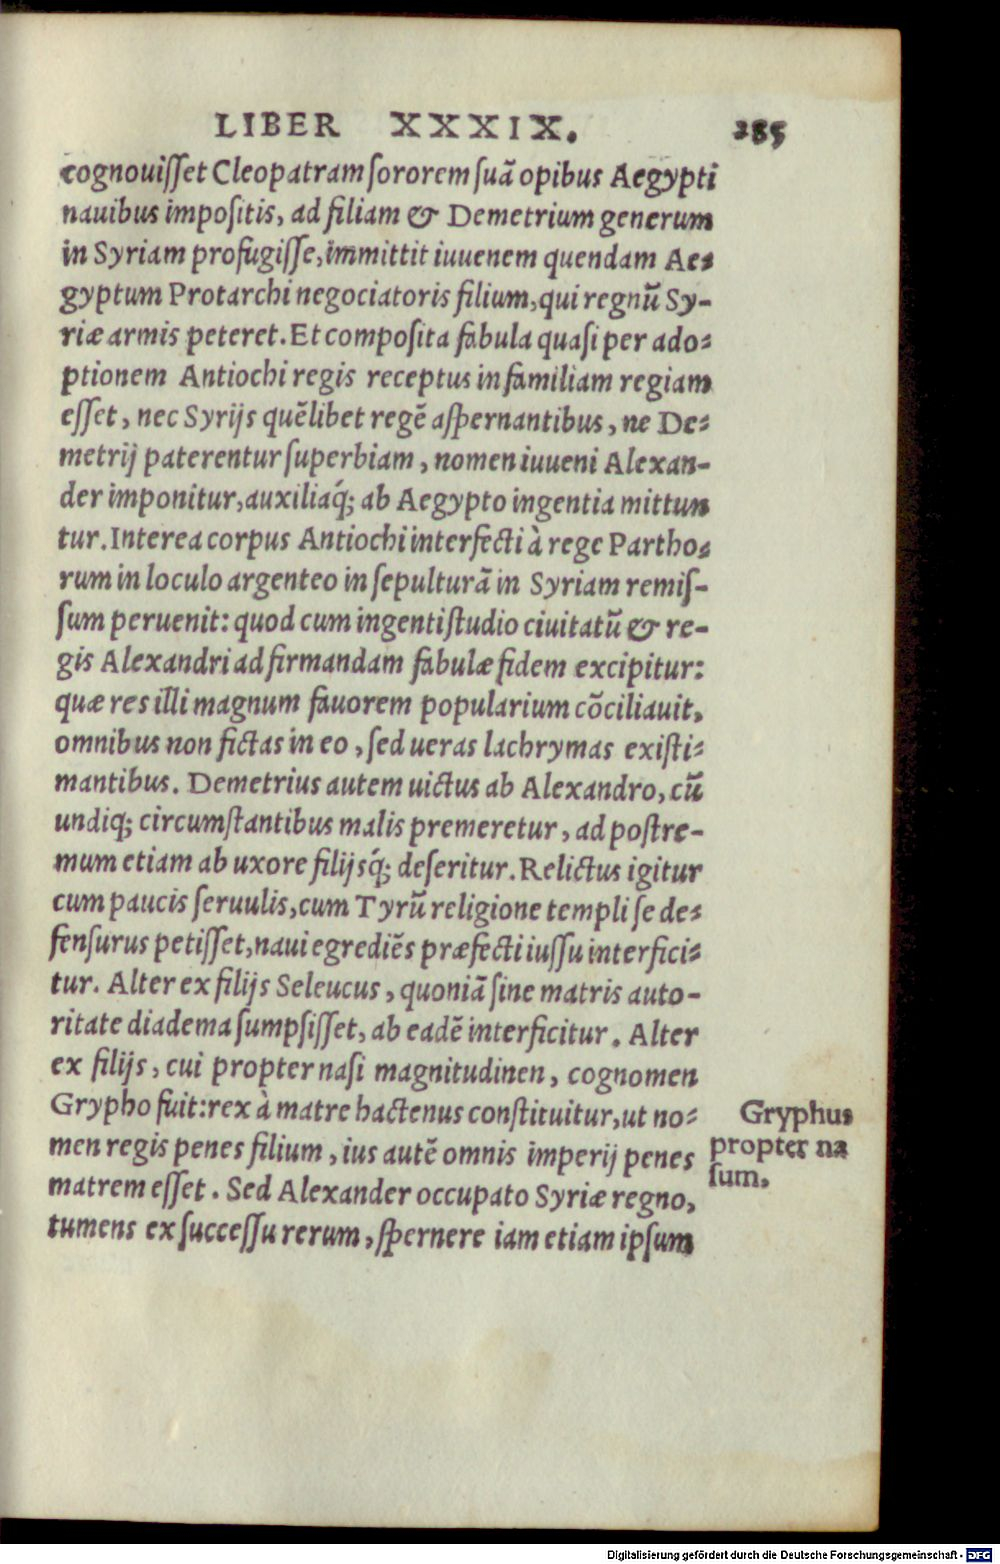 LIBER XXXIX. 285
cognouiſſet Cleopatram ſororem ſuã opibus Aegypti
nauibus impoſitis, ad filiam & Demetrium generum
in Syriam profugiſſe, immittit iuuenem quendam Ae-
gyptum Protarchi negociatoris filium, qui regnũ Sy-
riæ armis peteret. Et compoſita fabula quaſi per ado-
ptionem Antiochi regis receptus in familiam regiam
eſſet, nec Syrijs quẽlibet regẽ aſpernantibus, ne De-
metrij paterentur ſuperbiam, nomen iuueni Alexan-
der imponitur, auxiliaq́; ab Aegypto ingentia mittun
tur. Interea corpus Antiochi interfecti à rege Partho-
rum in loculo argenteo in ſepulturã in Syriam remiſ-
ſum peruenit: quod cum ingenti ſtudio ciuitatũ & re-
gis Alexandri ad firmandam fabulæ fidem excipitur:
quæ res illi magnum fauorem popularium cõciliauit,
omnibus non fictas in eo, ſed ueras lachrymas exiſti-
mantibus. Demetrius autem uictus ab Alexandro, cũ
undiq; circumſtantibus malis premeretur, ad poſtre-
mum etiam ab uxore filijsq́; deſeritur. Relictus igitur
cum paucis ſeruulis, cum Tyrũ religione templi ſe de-
fenſurus petiſſet, naui egrediẽs præfecti iuſſu interfici-
tur. Alter ex filijs Seleucus, quoniã ſine matris auto-
ritate diadema ſumpſiſſet, ab eadẽ interficitur. Alter
ex filijs, cui propter naſi magnitudinen, cognomen
Grypho fuit: rex à matre hactenus conſtituitur, ut no-
men regis penes filium, ius autẽ omnis imperij penes
matrem eſſet. Sed Alexander occupato Syriæ regno,
tumens ex ſucceſſu rerum, ſpernere iam etiam ipſum
Gryphus
propter na
ſum.
Digitalisierung gefördert durch die Deutsche Forschungsgemeinschaft - DFG